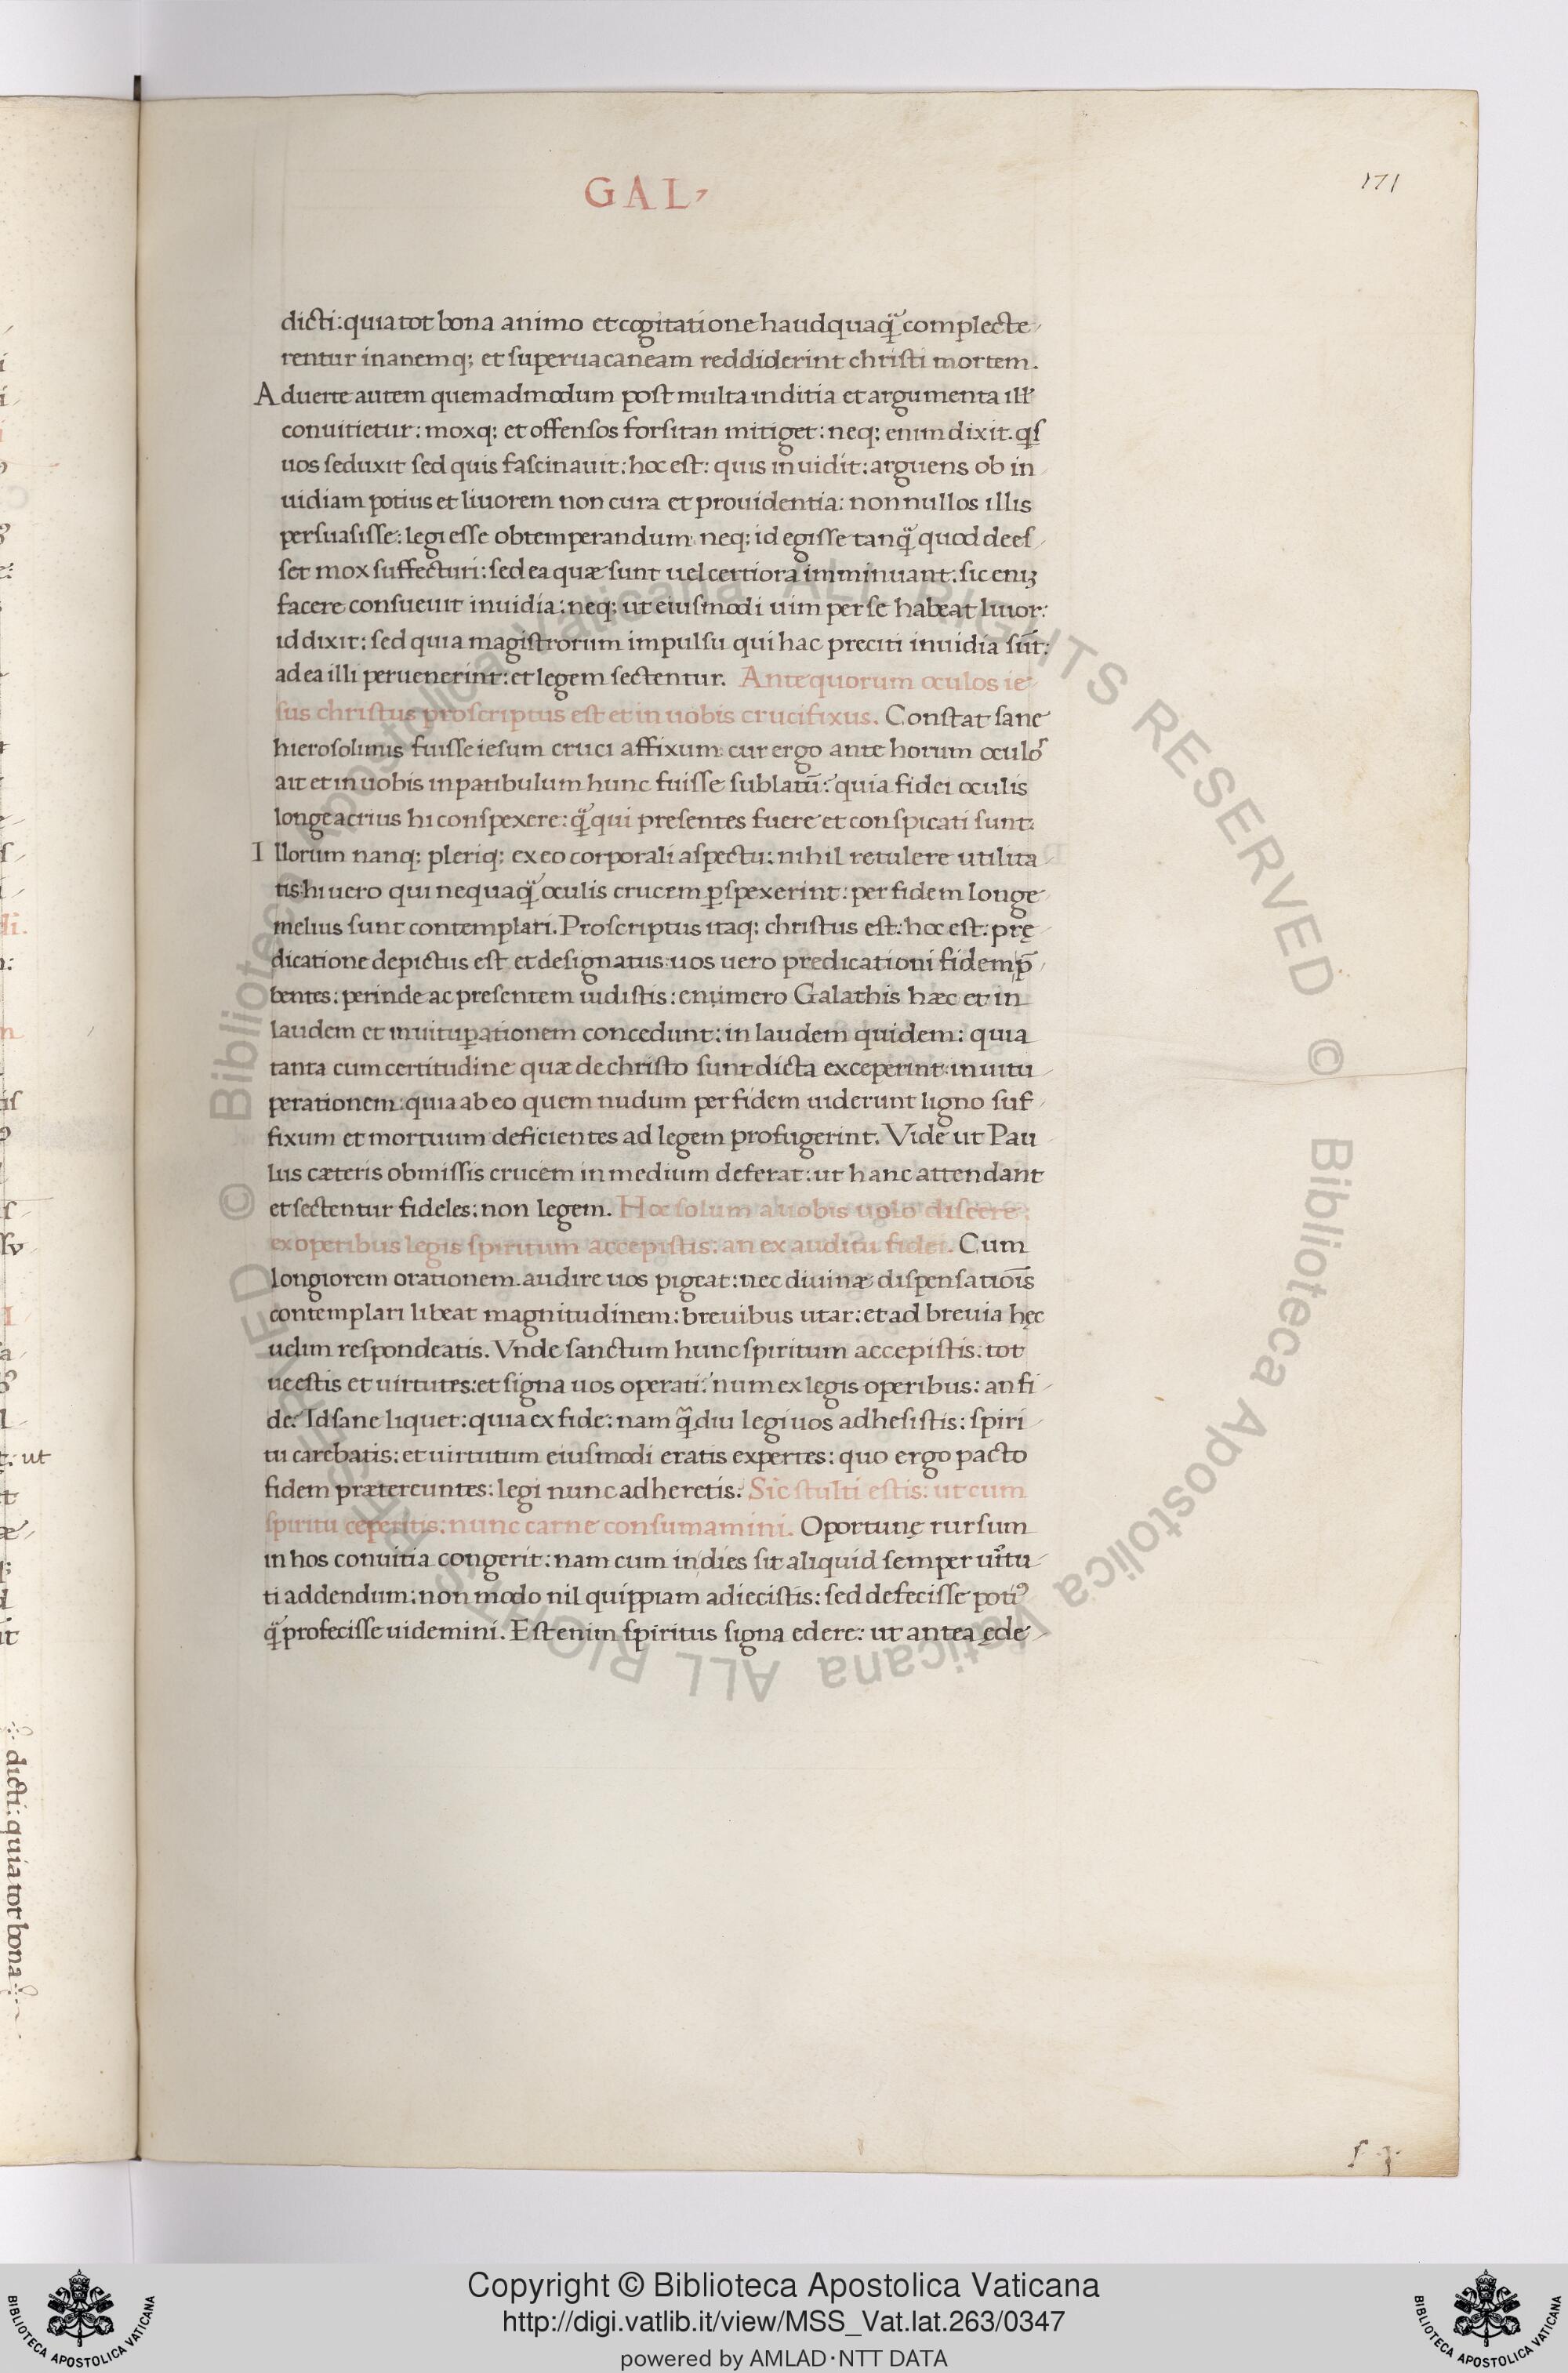 GAL
171
dicti: quia tot bona animo et cogitatione haudquaq̃ complecte
rentur inanemq; et superuacaneam reddiderint christi mortem.
Aduerte autem quemadmodum post multa inditia et argumenta ill'
conuitietur: moxq; et offensos forsitan mitiget: neq; enim dixit. q̲s
uos seduxit sed quis fascinauit: hoc est: quis inuidit: arguens ob in
uidiam potius et liuorem non cura et prouidentia: nonnullos illis
persuasisse: legi esse obtemperandum neq; id egisse tanq̃ quod dees
set mox suffecturi: sed ea quæ sunt uel certiora imminuant: sic eniꝫ
facere consueuit inuidia: neq; ut eiusmodi uim per se habeat liuor:
id dixit: sed quia magistrorum impulsu qui hac preciti inuidia sūt:
ad ea illi peruenerint: et legem sectentur. Ante quorum oculos ie
sus christus proscriptus est et in uobis crucifixus. Constat sane
hierosolimis fuisse iesum cruci affixum: cur ergo ante horum oculoʳ
ait et in uobis in patibulum hunc fuisse sublatū: quia fidei oculis
longe acrius hi conspexere: q̃ qui presentes fuere et conspicati sunt:
Illorum nanq; pleriq; ex eo corporali aspectu: nihil retulere utilita
tis: hi uero qui nequaq̃ oculis crucem ꝑspexerint: per fidem longe
melius sunt contemplati. Proscriptus itaq; christus est: hoc est: prę
dicatione depictus est et designatus: uos uero predicationi fidem p̄
bentes: perinde ac presentem uidistis: enimero Galathis hæc et in
laudem et in uituꝑationem concedunt: in laudem quidem: quia
tanta cum certitudine quæ de christo sunt dicta exceperint: in uitu
perationem: quia ab eo quem nudum per fidem uiderunt ligno suf
fixum et mortuum deficientes ad legem profugerint. Vide ut Pau
lus cæteris obmissis crucem in medium deferat: ut hanc attendant
et sectentur fideles: non legem. Hoc solum a uobis uolo discere:
ex operibus legis spiritum accepistis: an ex auditu fidei. Cum
longiorem orationem audire uos pigeat: nec diuinæ dispensatiōis
contemplari libeat magnitudinem: breuibus utar: et ad breuia hęc
uelim respondeatis. Vnde sanctum hunc spiritum accepistis: tot
ue estis et uirtutes: et signa uos operati: num ex legis operibus: an fi
de: Id sane liquet: quia ex fide: nam q̃diu legi uos adhesistis: spiri
tu carebatis: et uirtutum eiusmodi eratis expertes: quo ergo pacto
fidem prætereuntes: legi nunc adheretis: Sic stulti estis: ut cum
spiritu ceperitis: nunc carne consumamini. Oportunę rursum
in hos conuitia congerit: nam cum in dies sit aliquid semper uir̃tu
ti addendum: non modo nil quippiam adiecistis: sed defecisse potiꝰ
q̃ profecisse uidemini. Est enim spiritus signa edere: ut antea ęde
dicti: quia tot bona
Copyright © Biblioteca Apostolica Vaticana
http://digi.vatlib.it/view/MSS_Vat.lat.263/0347
powered by AMLAD·NTT DATA
BIBLIOTECA APOSTOLICA VATICANA
BIBLIOTECA APOSTOLICA VATICANA
© Biblioteca Apostolica Vaticana ALL RIGHTS RESERVED © Biblioteca Apostolica Vaticana ALL RIGHTS RESERVED